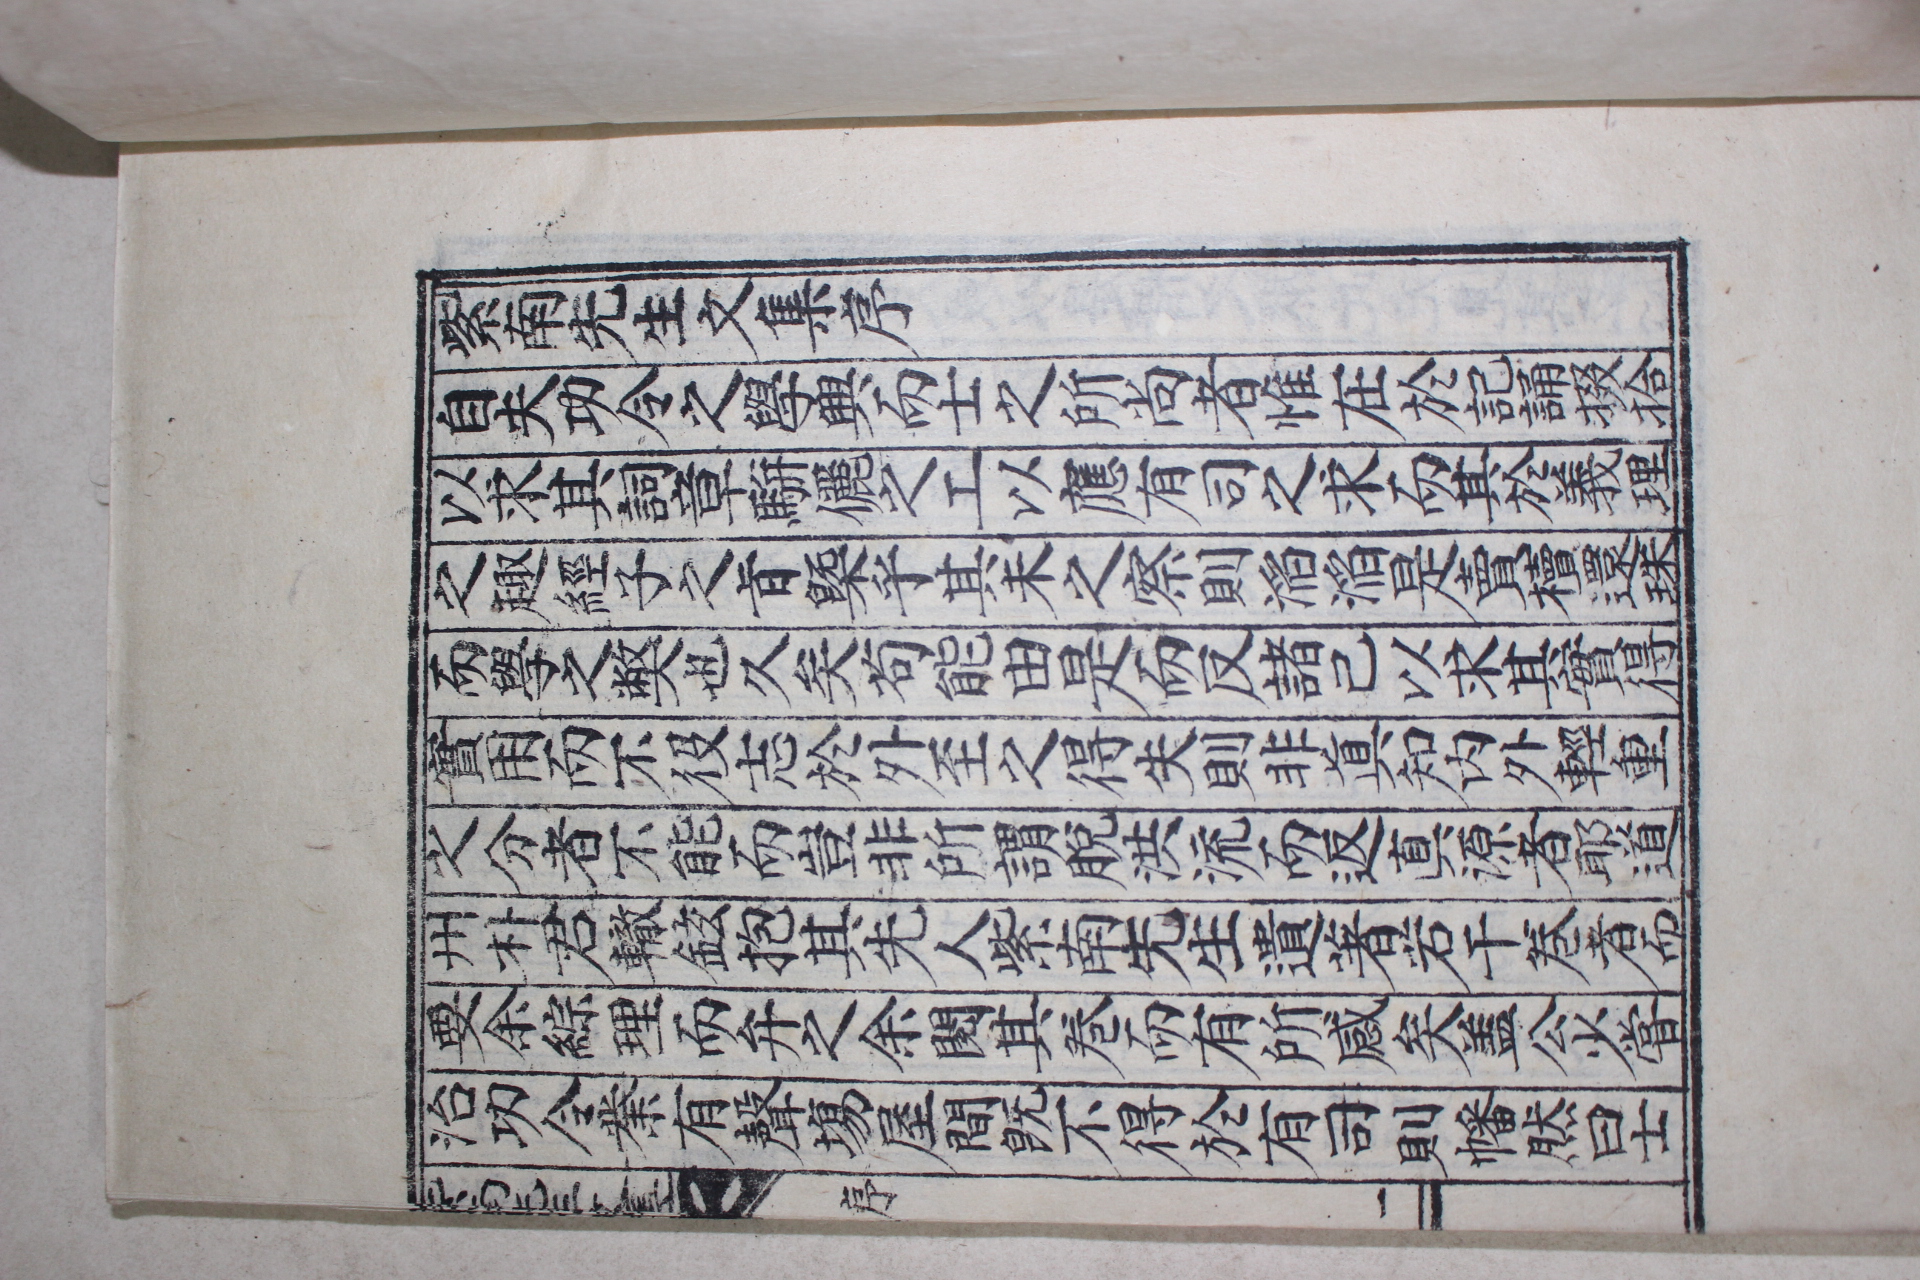 紫南先生文集序
自夫功令之學興而士之所尚者惟在於記誦掇拾
以求其詞章騈儷之工以應有司之求而其於義理
之趣經子之旨槩乎其未之察則滔滔是買櫝還珠
而學之弊也久矣苟能由是而反諸己以求其實得
實用而不役志於外至之得失則非眞知內外輕重
之分者不能而豈非所謂脫洪流而返眞源者耶道
州朴君轍鉉抱其先人紫南先生遺著若干卷者而
要余綜理而弁之余閱其卷而有所感矣盖公少嘗
治功令業有聲塲屋間旣不得於有司則幡然曰士
序 一